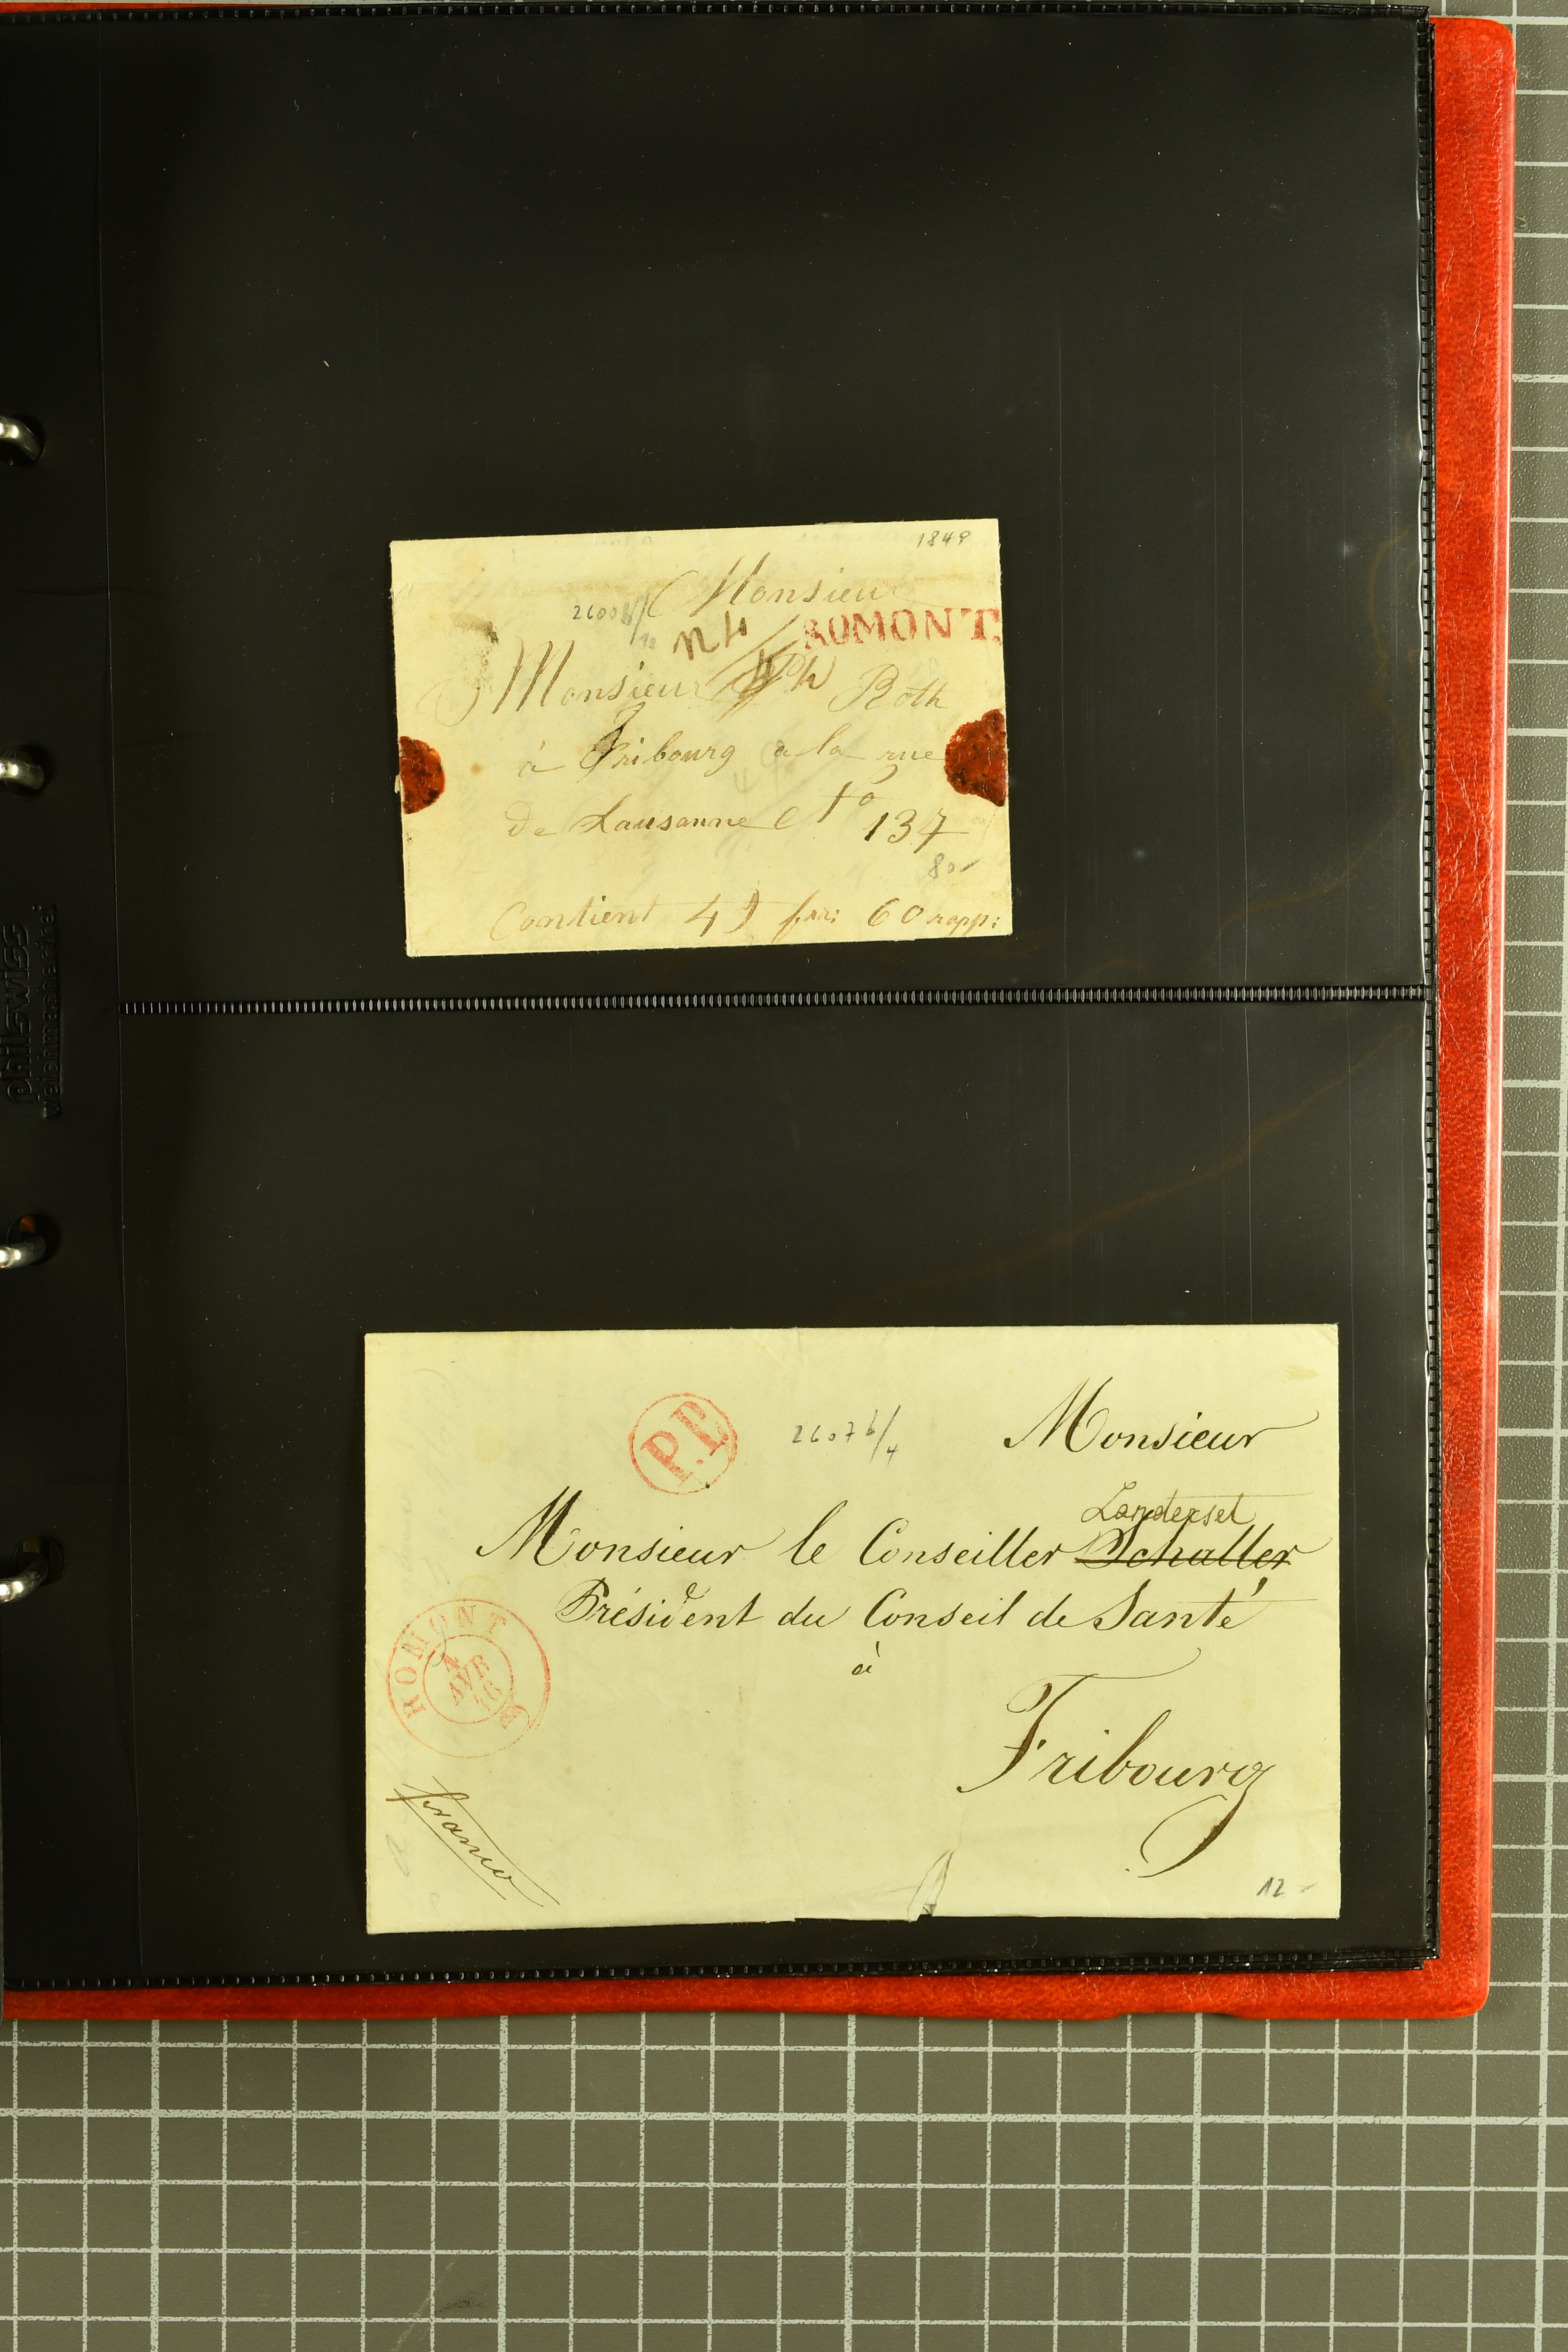 1849
Monsieur
ROMONT.
Monsieur Roth
à Fribourg a la rue
de Lausanne No 137
80.-
Contient 45 frs: 60 rapp:
philswiss
weichmacherfrei
P.P.
2607 b/4
Monsieur
Landerset
Monsieur le Conseiller Schaller
Président du Conseil de Santé
à
Fribourg
ROMONT
AVR
franco
12 -